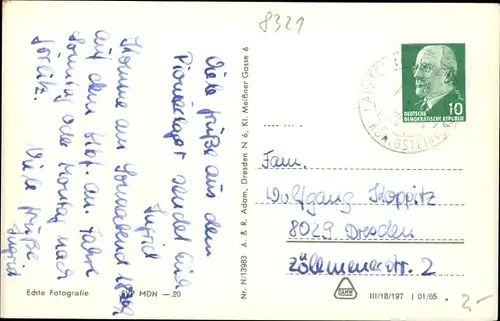 8321
Viele Grüße aus dem
Pionierlager sendet Euch
Ingrid
Komme am Sonnabend
auf dem Hbf. an. Fahre
Sonntag oder Montag nach
Görlitz.
Viele Grüße
Ingrid
Echte Fotografie
MDN — 20
Nr. N/13983 A. & R. Adam, Dresden N 6, Kl. Meißner Gasse 6
DEUTSCHE
DEMOKRATISCHE REPUBLIK
10
KÖNIGSTEIN
Fam.
Wolfgang Koppitz
8029 Dresden
Zöllmenerstr. 2
III/18/197 J 01/65
2,-